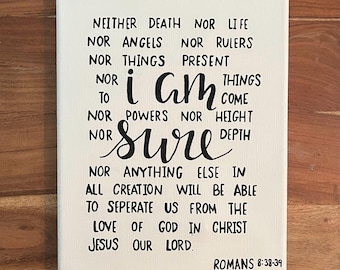 NEITHER DEATH NOR LIFE
NOR ANGELS NOR RULERS
NOR THINGS PRESENT
NOR i am THINGS
TO COME
NOR POWERS NOR HEIGHT
NOR sure DEPTH
NOR ANYTHING ELSE IN
ALL CREATION WILL BE ABLE
TO SEPERATE US FROM THE
LOVE OF GOD IN CHRIST
JESUS OUR LORD.
ROMANS 8:38-39